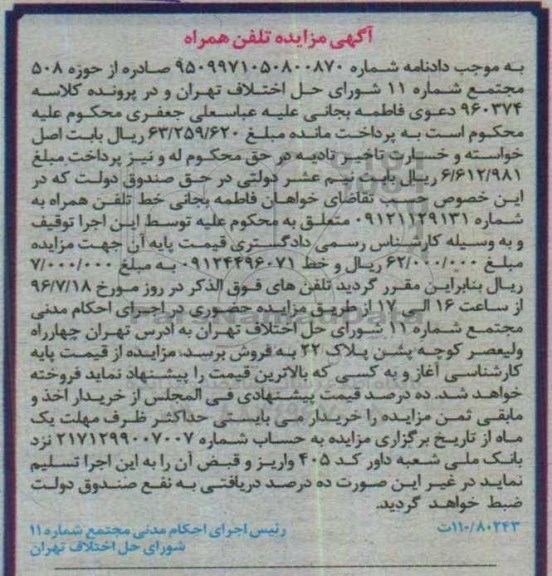 آگهی مزایده تلفن همراه
به موجب دادنامه شماره ۹۵۰۹۹۷۱۰۵۰۸۰۰۸۷۰ صادره از حوزه ۵۰۸
مجتمع شماره ۱۱ شورای حل اختلاف تهران و در پرونده کلاسه
۹۶۰۳۷۴ دعوی فاطمه بجانی علیه عباسعلی جعفری محکوم علیه
محکوم است به پرداخت مانده مبلغ ۶۳/۲۵۹/۶۲۰ ریال بابت اصل
خواسته و خسارت تاخیر تادیه در حق محکوم له و نیز پرداخت مبلغ
۶/۶۱۲/۹۸۱ ریال بابت نیم عشر دولتی در حق صندوق دولت که در
این خصوص حسب تقاضای خواهان فاطمه بجانی خط تلفن همراه به
شماره ۰۹۱۲۱۱۲۹۱۳۱ متعلق به محکوم علیه توسط این اجرا توقیف
و به وسیله کارشناس رسمی دادگستری قیمت پایه آن جهت مزایده
مبلغ ۶۲/۰۰۰/۰۰۰ ریال و خط ۰۹۱۲۴۴۹۶۰۷۱ به مبلغ ۷/۰۰۰/۰۰۰
ریال بنابراین مقرر گردید تلفن های فوق الذکر در روز مورخ ۹۶/۷/۱۸
از ساعت ۱۶ الی ۱۷ از طریق مزایده حضوری در اجرای احکام مدنی
مجتمع شماره ۱۱ شورای حل اختلاف تهران به آدرس تهران چهارراه
ولیعصر کوچه پشن پلاک ۲۲ به فروش برسد. مزایده از قیمت پایه
کارشناسی آغاز و به کسی که بالاترین قیمت را پیشنهاد نماید فروخته
خواهد شد. ده درصد قیمت پیشنهادی فی المجلس از خریدار اخذ و
مابقی ثمن مزایده را خریدار می بایستی حداکثر ظرف مهلت یک
ماه از تاریخ برگزاری مزایده به حساب شماره ۲۱۷۱۲۹۹۰۰۷۰۰۷ نزد
بانک ملی شعبه داور کد ۴۰۵ واریز و قبض آن را به این اجرا تسلیم
نماید در غیر این صورت ده درصد دریافتی به نفع صندوق دولت
ضبط خواهد گردید.
۱۱۰/۸۰۲۴۳ت رئیس اجرای احکام مدنی مجتمع شماره ۱۱
شورای حل اختلاف تهران